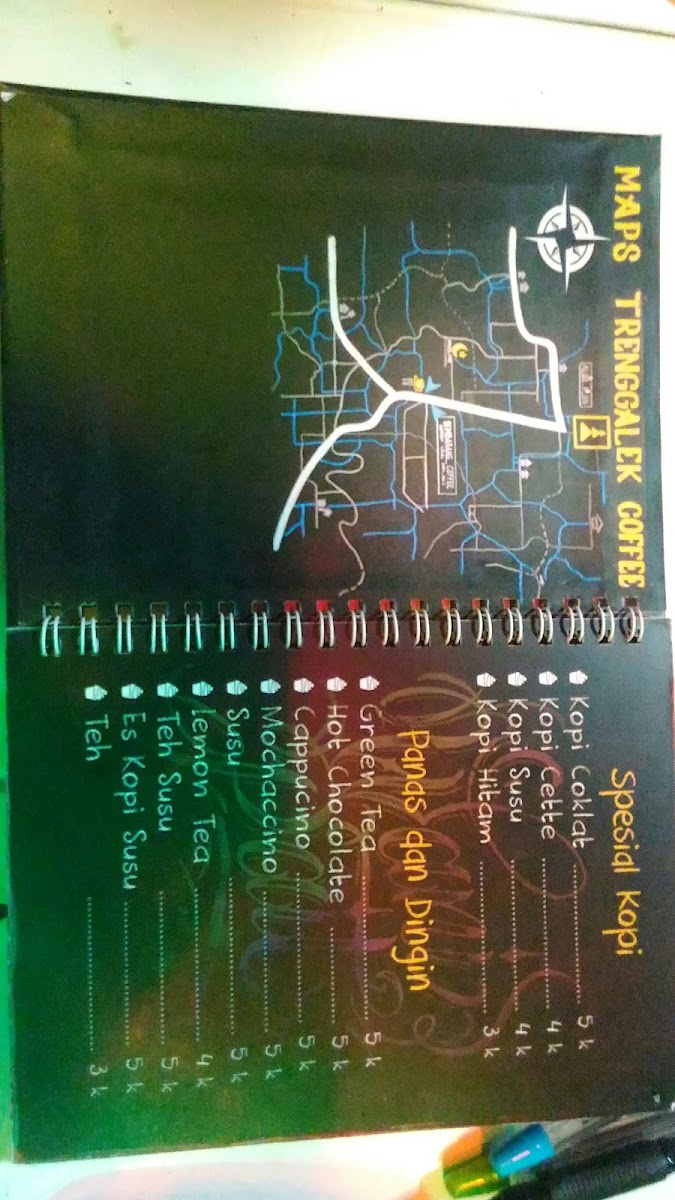 MAPS TRENGGALEK COFFEE
Spesial Kopi
Kopi Coklat .......... 5 k
Kopi Cette .......... 4 k
Kopi Susu .......... 4 k
Kopi Hitam .......... 3 k
Panas dan Dingin
Green Tea .......... 5 k
Hot Chocolate .......... 5 k
Cappucino .......... 5 k
Mochaccino .......... 5 k
Susu .......... 5 k
Lemon Tea .......... 4 k
Teh Susu .......... 5 k
Es Kopi Susu .......... 5 k
Teh .......... 3 k